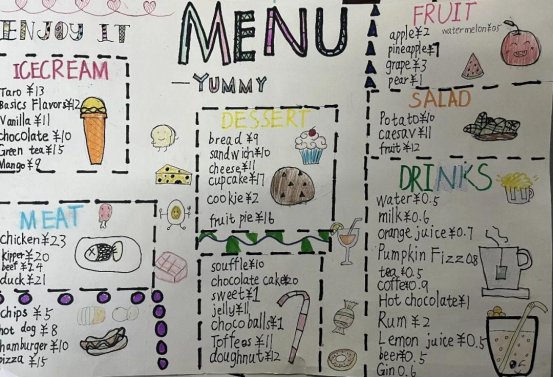 ENJOY IT
MENU
—YUMMY
ICECREAM
Taro ¥13
Basics Flavors¥12
Vanilla ¥11
chocolate ¥10
Green tea ¥15
Mango ¥9
MEAT
chicken¥23
kipper¥20
beef ¥24
duck¥21
chips ¥5
hot dog ¥8
hamburger ¥10
pizza ¥15
DESSERT
bread ¥9
sandwich¥10
cheese¥11
cupcake¥17
cookie ¥2
fruit pie¥16
souffle¥10
chocolate cake¥20
sweet¥1
jelly¥11
choco balls¥1
Toffees ¥11
doughnut¥12
FRUIT
apple¥2
watermelon¥05
pineapple¥7
grape¥3
pear¥1
SALAD
Potato¥10
caesav¥11
fruit ¥12
DRINKS
water¥0.5
milk¥0.6
orange juice¥0.7
Pumpkin Fizz0.8
tea¥0.5
coffee0.9
Hot chocolate¥1
Rum ¥2
Lemon juice¥0.5
beer¥0.5
Gin 0.6